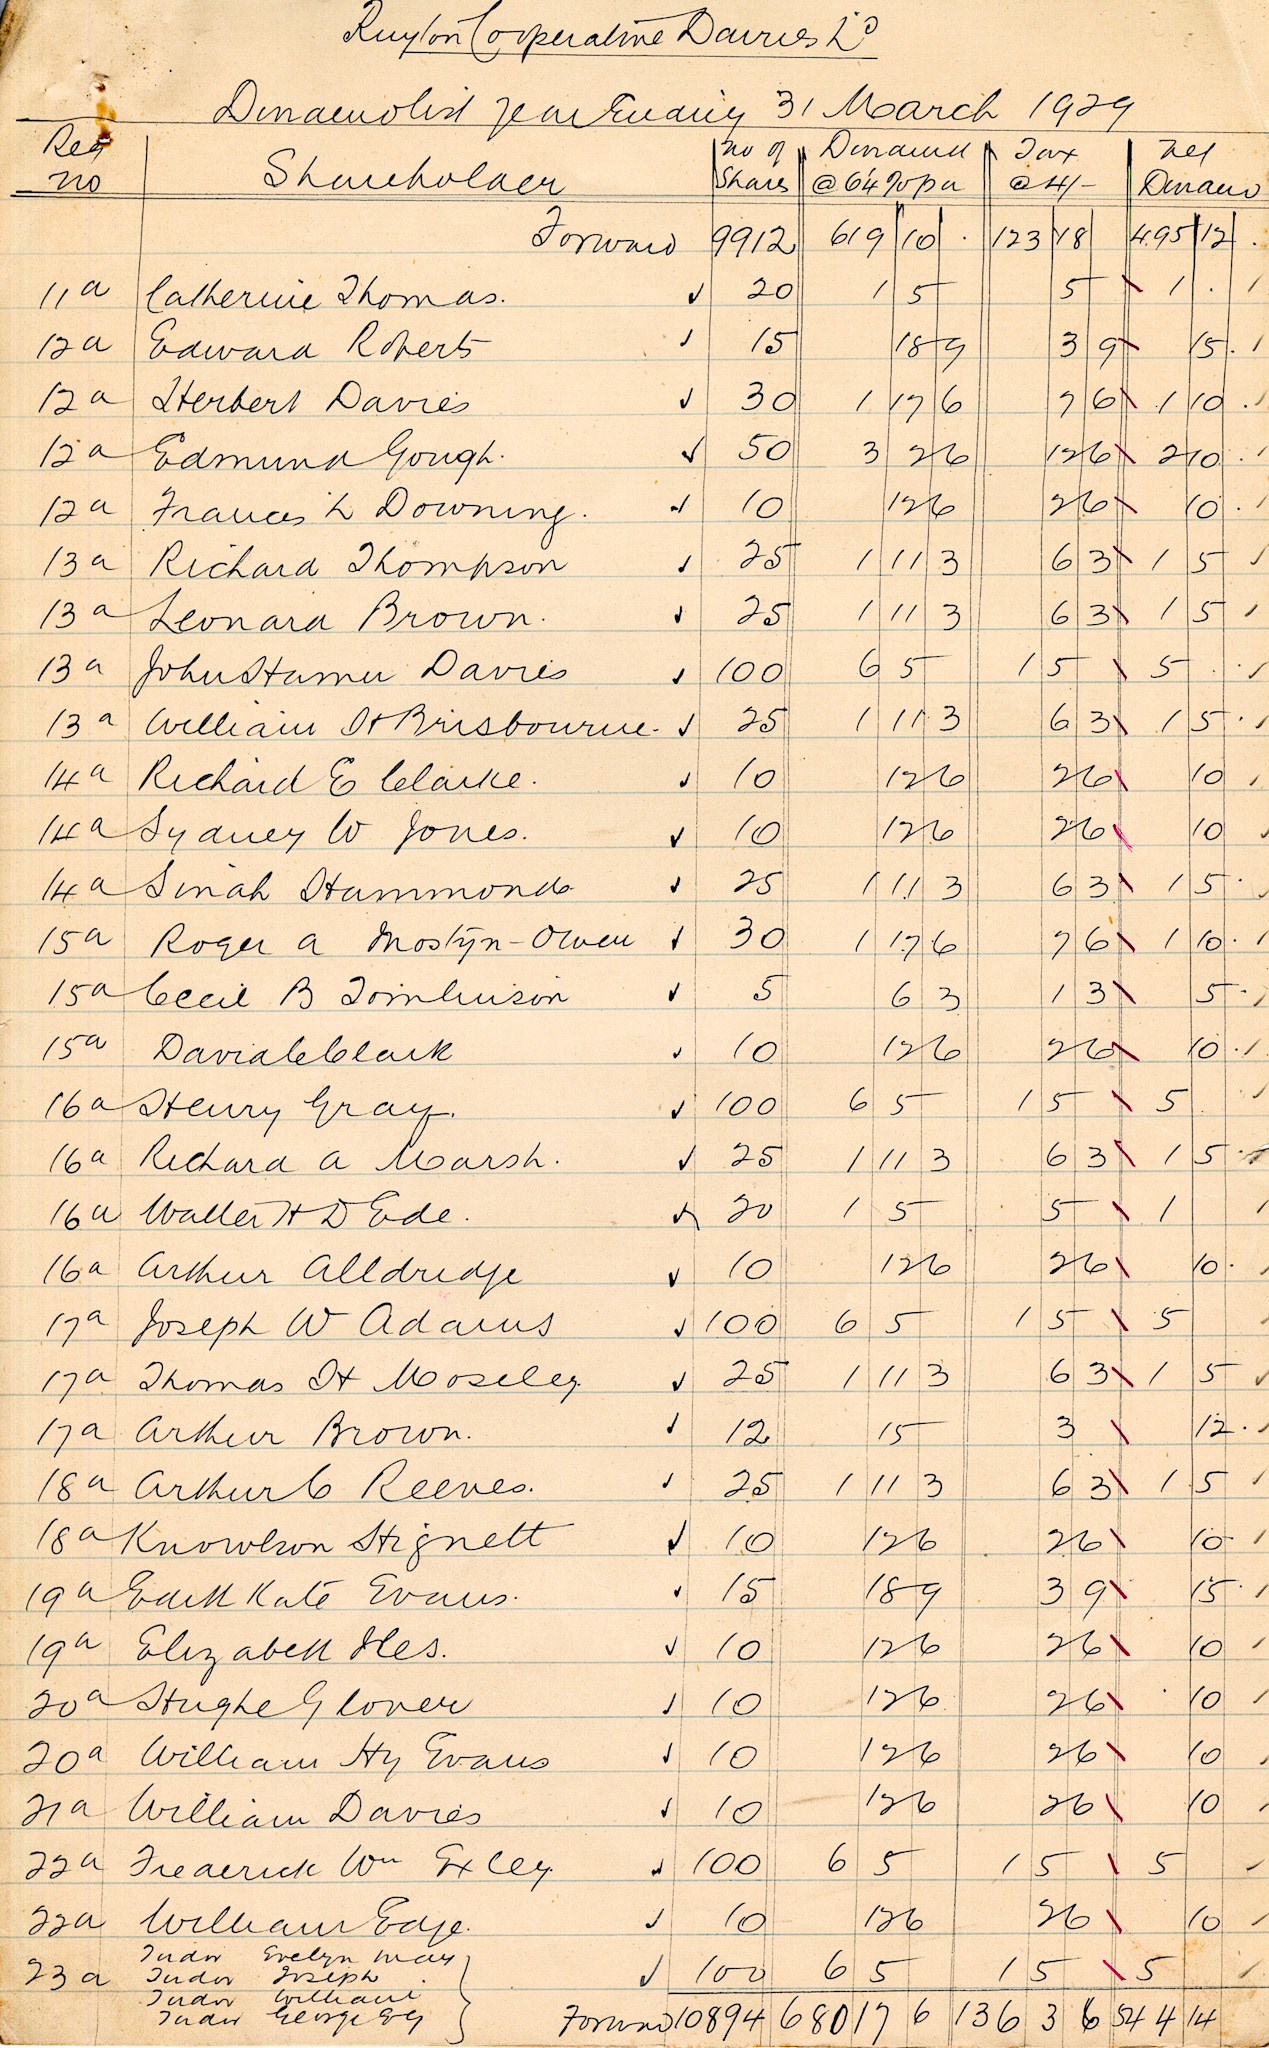 Ruyton Cooperative Dairies Ld
Dividend list year Ending 31 March 1929
Reg no Shareholder no of Shares Dividend @ 6¼ % pa Tax @ 4/- Net Dividend
Forward 9912 619 10 . 123 18 495 12 .
11a Catherine Thomas. 20 1 5 5 1 .
12a Edward Roberts 15 18 9 3 9 15 .
12a Herbert Davies 30 1 17 6 7 6 1 10 .
12a Edmund Gough. 50 3 2 6 12 6 2 10 .
12a Frances L Downing. 10 12 6 2 6 10 .
13a Richard Thompson 25 1 11 3 6 3 1 5
13a Leonard Brown. 25 1 11 3 6 3 1 5
13a John Hamer Davies 100 6 5 1 5 5 . .
13a William H Brisbourne. 25 1 11 3 6 3 1 5 .
14a Richard E Clarke. 10 12 6 2 6 10
14a Sydney W Jones. 10 12 6 2 6 10
14a Sinah Hammonds 25 1 11 3 6 3 1 5 .
15a Roger a Mostyn-Owen 30 1 17 6 7 6 1 10 .
15a Cecil B Tomlinson 5 6 3 1 3 5 .
15a David C Clark 10 12 6 2 6 10 .
16a Henry Gray. 100 6 5 1 5 5
16a Richard a Marsh. 25 1 11 3 6 3 1 5 .
16a Walter H D Ede. 20 1 5 5 1
16a Arthur Alldridge 10 12 6 2 6 10 .
17a Joseph W Adams 100 6 5 1 5 5
17a Thomas H Moseley 25 1 11 3 6 3 1 5
17a Arthur Brown. 12 15 3 12 .
18a Arthur C Reeves. 25 1 11 3 6 3 1 5
18a Knowlson Hignett 10 12 6 2 6 10
19a Edith Kate Evans. 15 18 9 3 9 15 .
19a Elizabeth Iles. 10 12 6 2 6 10
20a Hughe Glover 10 12 6 2 6 10
20a William Hy Evans 10 12 6 2 6 10
21a William Davies 10 12 6 2 6 10
22a Frederick Wm Exley. 100 6 5 1 5 5
22a William Edge. 10 12 6 2 6 10
Tudor Evelyn May
23a Tudor Joseph . 100 6 5 1 5 5
Tudor William
Tudor George
Forward 10894 680 17 6 136 3 6 544 14